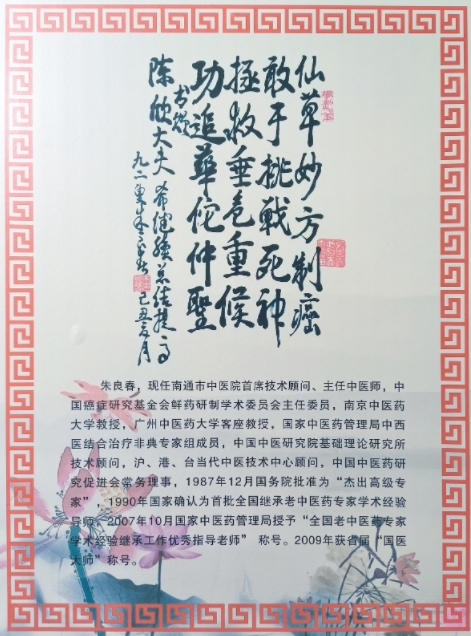 仙草妙方制癌
敢于挑戰死神
拯救垂危重候
功追華佗仲聖
大夫 希继续总结提高
九二叟朱良春 己丑夏月
朱良春，现任南通市中医院首席技术顾问、主任中医师，中
国癌症研究基金会鲜药研制学术委员会主任委员，南京中医药
大学教授，广州中医药大学客座教授，国家中医药管理局中西
医结合治疗非典专家组成员，中国中医研究院基础理论研究所
技术顾问，沪、港、台当代中医技术中心顾问，中国中医药研
究促进会常务理事，1987年12月国务院批准为“杰出高级专
家”，1990年国家确认为首批全国继承老中医药专家学术经验
导师，2007年10月国家中医药管理局授予“全国老中医药专家
学术经验继承工作优秀指导老师”称号。2009年获首届“国医
大师”称号。